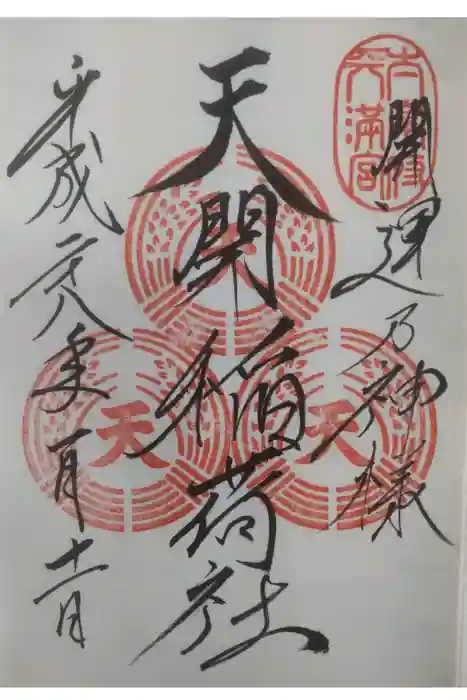 開運乃神様
天開稲荷社
平成二十八年一月十一日
天満宮
天
天